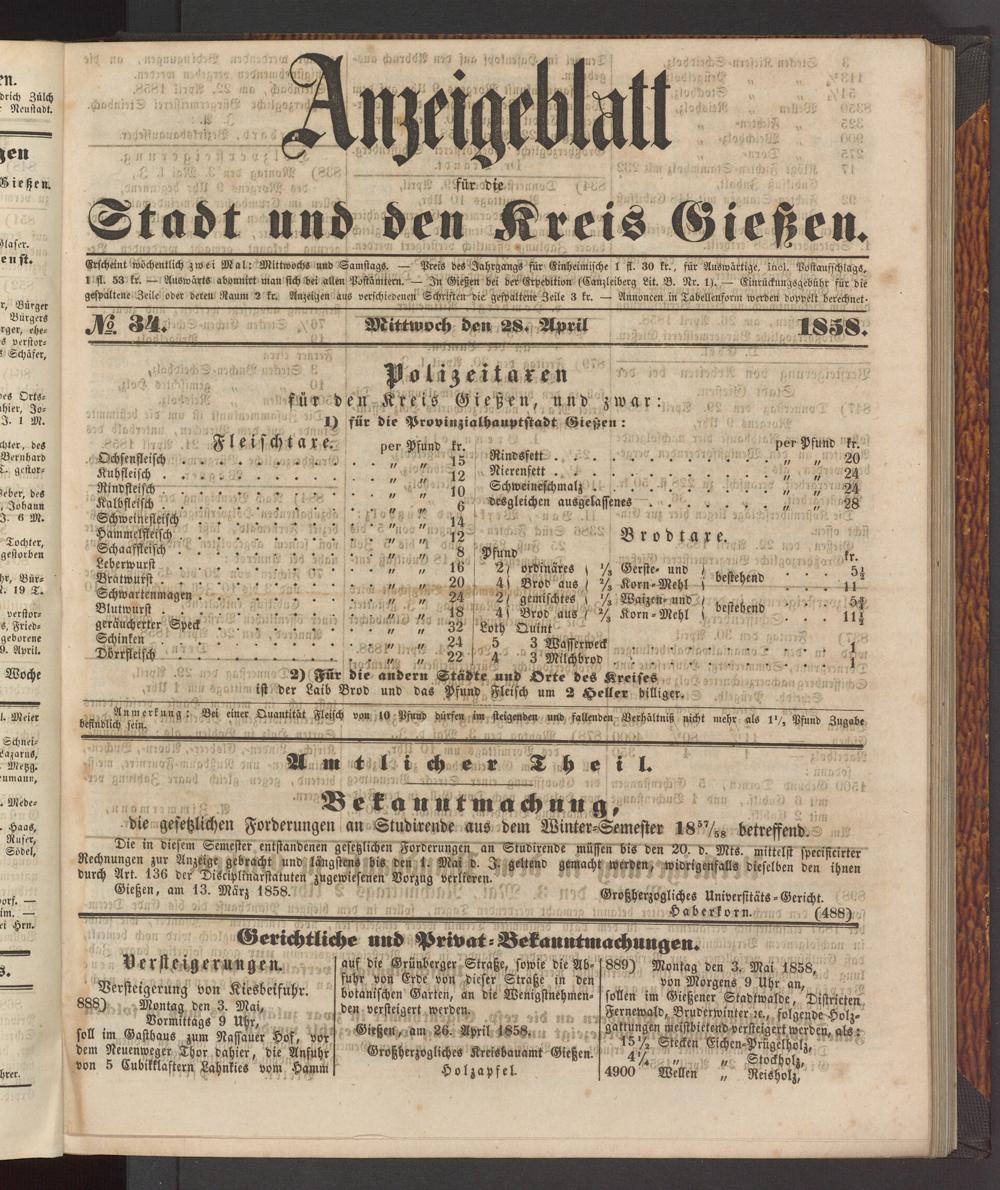 en.
drich Zülch
Neustadt.
gen
Gießen.
Glaser.
enst.
r, Bürger
Bürgers
rger, ehe-
s verstor-
Schäfer,
des Orts-
J. 1 M.
chter, des
Bernhard
T. gestor-
eber, des
Johann
J. 6 M.
Tochter,
gestorben
hr, Bür-
19 T.
verstor-
s, Fried-
geborene
9. April.
Woche
l. Meier
Schnei-
Lazarus,
Metzg.
eumann,
Mede-
Haas,
Rufer,
Södel,
orf. —
im. —
ei Hrn.
s.
hrer.
Anzeigeblatt
für die
Stadt und den Kreis Gießen.
Erscheint wöchentlich zwei Mal: Mittwochs und Samstags. — Preis des Jahrgangs für Einheimische 1 fl. 30 kr., für Auswärtige, incl. Postaufschlags,
1 fl. 53 kr. — Auswärts abonnirt man sich bei allen Postämtern. — In Gießen bei der Expedition (Canzleiberg Lit. B. Nr. 1). — Einrückungsgebühr für die
gespaltene Zeile oder deren Raum 2 kr. Anzeigen aus verschiedenen Schriften die gespaltene Zeile 3 kr. — Annoncen in Tabellenform werden doppelt berechnet.
No 34. Mittwoch den 28. April 1858.
Polizeitaxen
für den Kreis Gießen, und zwar:
1) für die Provinzialhauptstadt Gießen:
Fleischtaxe. per Pfund kr.
Ochsenfleisch . . . „ „ 15
Kuhfleisch . . . „ „ 12
Rindfleisch . . . „ „ 10
Kalbfleisch . . . „ „ 6
Schweinefleisch . . . „ „ 14
Hammelfleisch . . . „ „ 12
Schaaffleisch . . . „ „ 8
Leberwurst . . . „ „ 16
Bratwurst . . . „ „ 20
Schwartenmagen . . . „ „ 24
Blutwurst . . . „ „ 18
geräucherter Speck . . . „ „ 32
Schinken . . . „ „ 24
Dörrfleisch . . . „ „ 22
per Pfund kr.
Rindsfett . . . „ „ 20
Nierenfett . . . „ „ 24
Schweineschmalz . . . „ „ 24
desgleichen ausgelassenes . . . „ „ 28
Brodtaxe.
Pfund kr.
2 ordinäres 1/3 Gerste- und bestehend . . . 5½
4 Brod aus 2/3 Korn-Mehl 11
2 gemischtes 1/3 Waizen- und bestehend . . .
4 Brod aus 2/3 Korn-Mehl 11½
Loth Quint
5 3 Wasserweck . . . 1
4 3 Milchbrod . . . 1
2) Für die andern Städte und Orte des Kreises
ist der Laib Brod und das Pfund Fleisch um 2 Heller billiger.
Anmerkung: Bei einer Quantität Fleisch von 10 Pfund dürfen im steigenden und fallenden Verhältniß nicht mehr als 1½ Pfund Zugabe
befindlich sein.
Amtlicher Theil.
Bekanntmachung,
die gesetzlichen Forderungen an Studirende aus dem Winter-Semester 1857/58 betreffend.
Die in diesem Semester entstandenen gesetzlichen Forderungen an Studirende müssen bis den 20. d. Mts. mittelst specificirter
Rechnungen zur Anzeige gebracht und längstens bis den 1. Mai d. J. geltend gemacht werden, widrigenfalls dieselben den ihnen
durch Art. 136 der Disciplinarstatuten zugewiesenen Vorzug verlieren.
Gießen, am 13. März 1858.
Großherzogliches Universitäts-Gericht.
Haberkorn. (488)
Gerichtliche und Privat-Bekanntmachungen.
Versteigerungen.
Versteigerung von Kiesbeifuhr.
888) Montag den 3. Mai,
Vormittags 9 Uhr,
soll im Gasthaus zum Nassauer Hof, vor
dem Neuenweger Thor dahier, die Anfuhr
von 5 Cubikklaftern Lahnkies vom Hamm
auf die Grünberger Straße, sowie die Ab-
fuhr von Erde von dieser Straße in den
botanischen Garten, an die Wenigstnehmen-
den versteigert werden.
Gießen, am 26. April 1858.
Großherzogliches Kreisbauamt Gießen.
Holzapfel.
889) Montag den 3. Mai 1858,
von Morgens 9 Uhr an,
sollen im Gießener Stadtwalde, Districten
Fernewald, Bruderwinter ꝛc., folgende Holz-
gattungen meistbietend versteigert werden, als:
15½ Stecken Eichen-Prügelholz,
4¼ „ „ Stockholz,
4900 Wellen „ Reisholz,